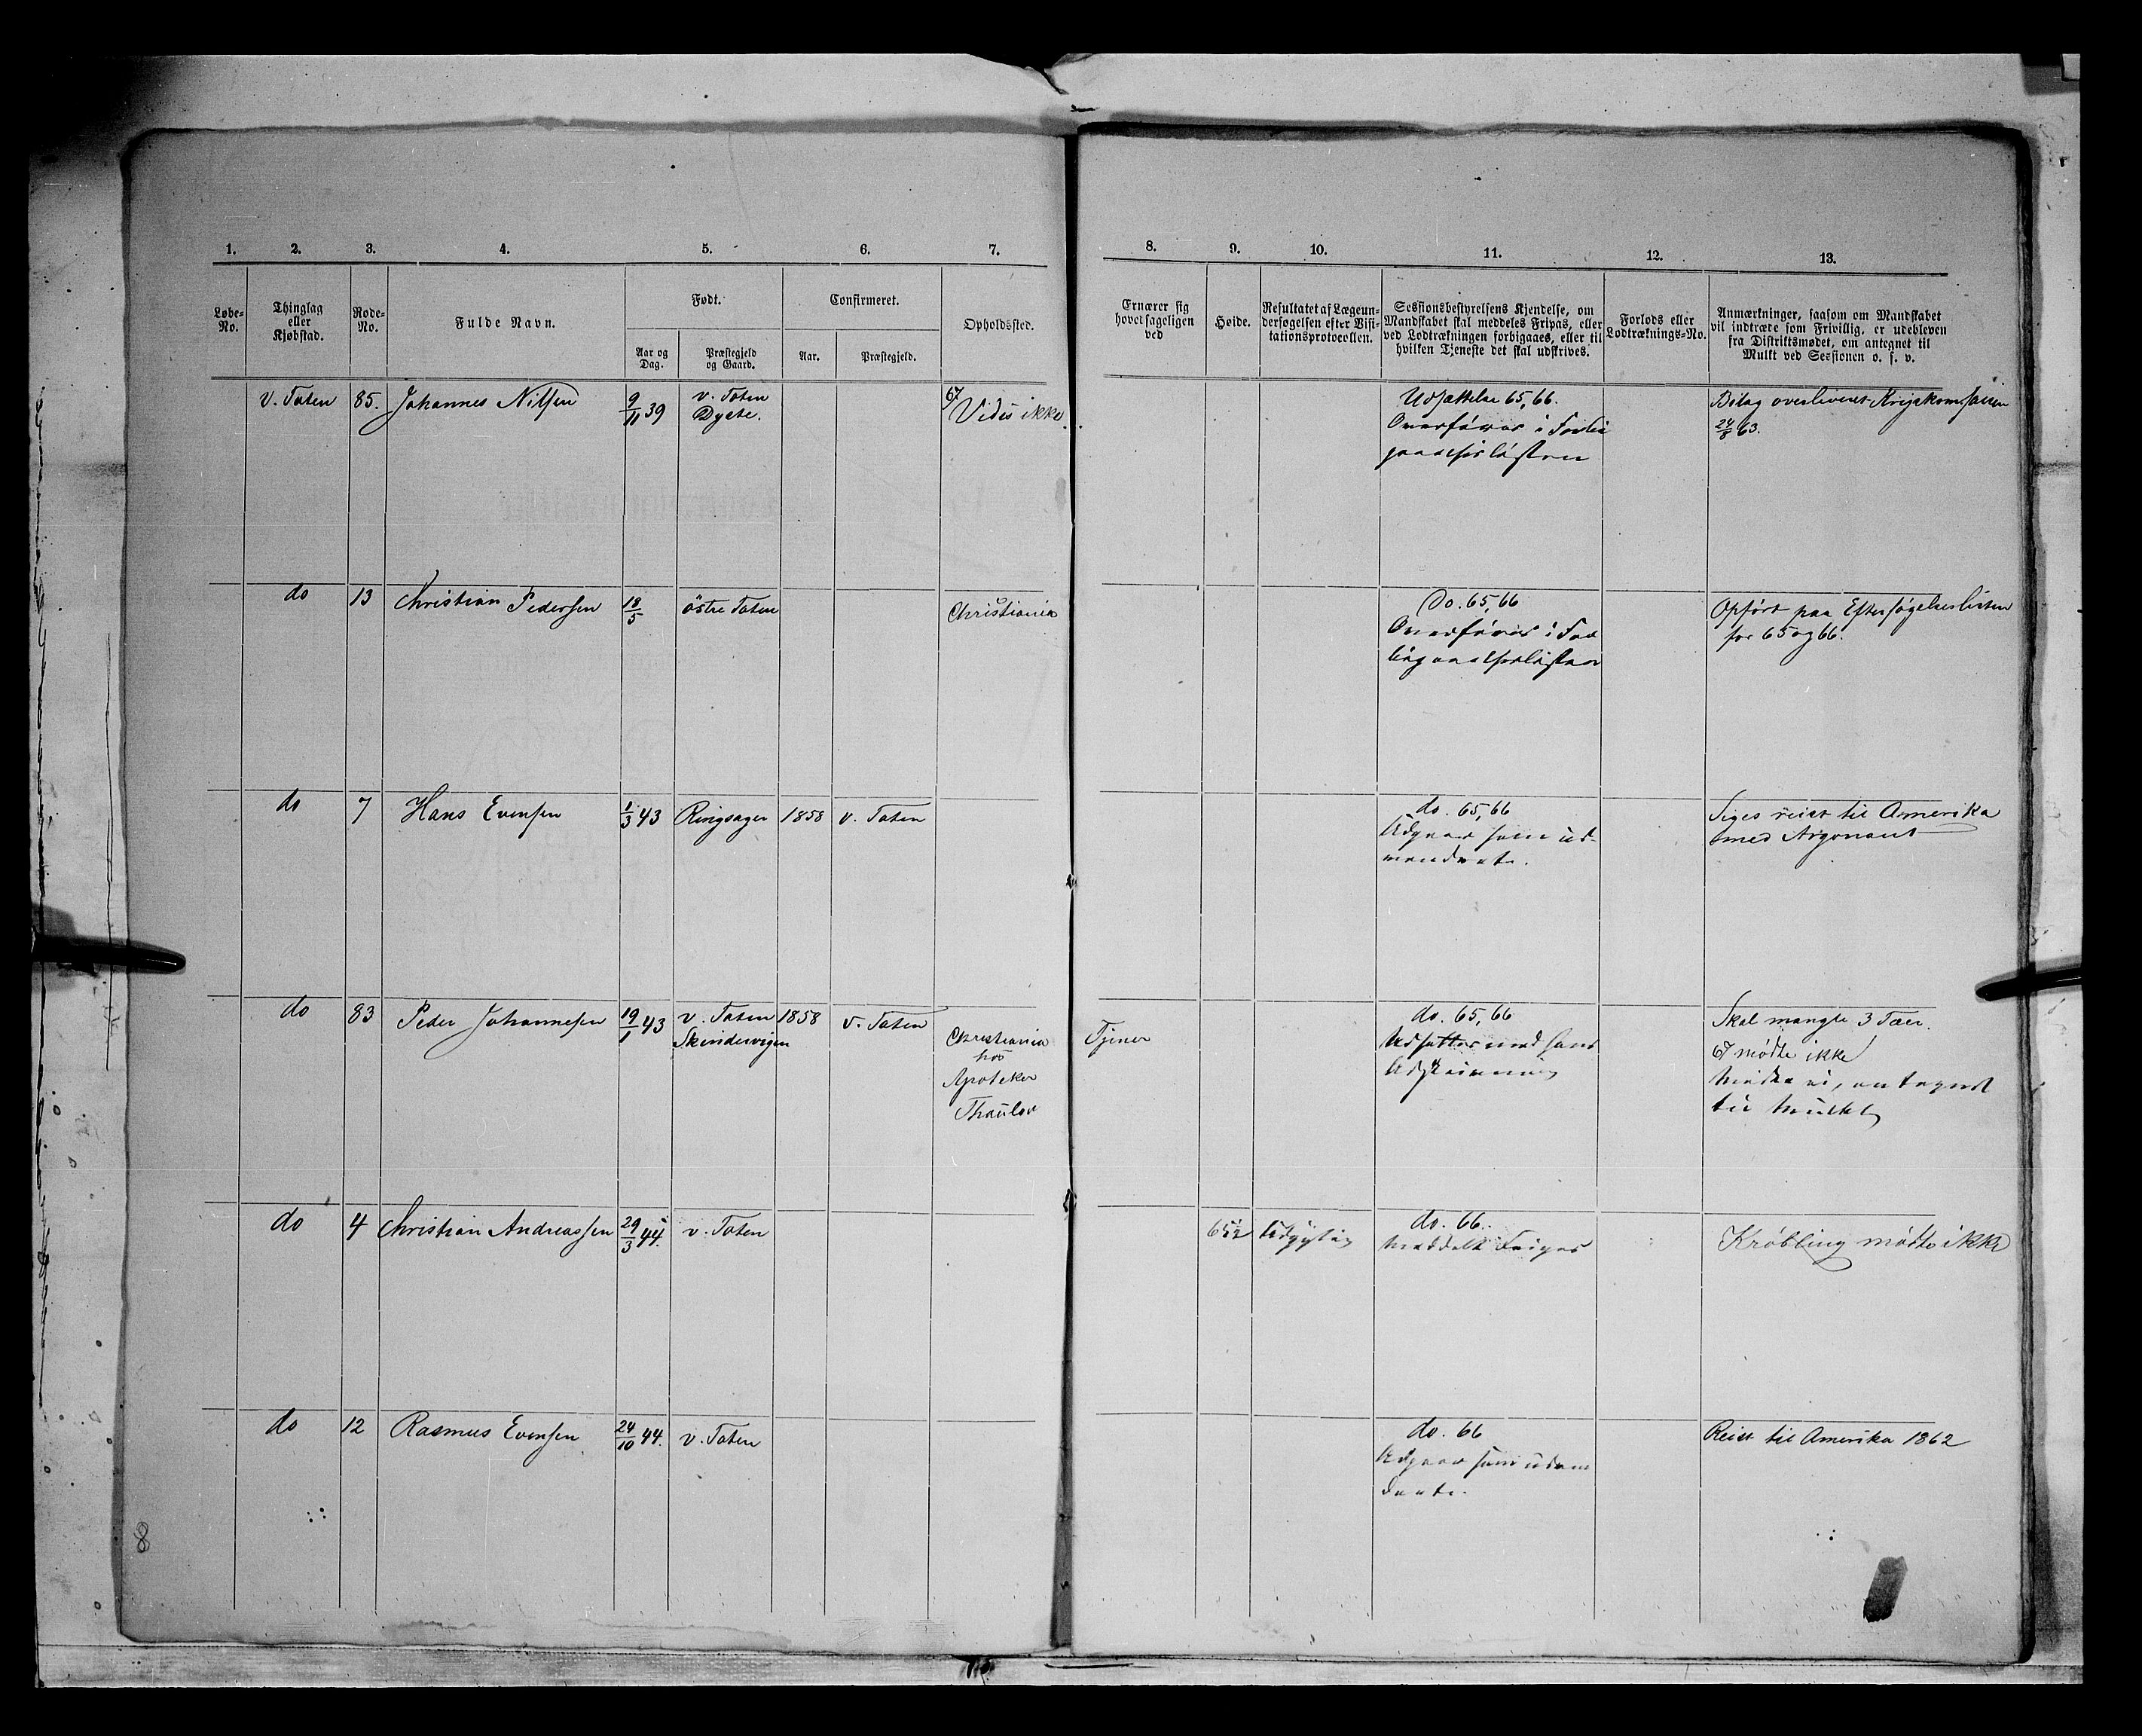 1. 2. 3. 4. 5. 6. 7.
Løbe-No.
Thinglag eller Kjøbstad.
Rode-No.
Fulde Navn.
Født.
Aar og Dag.
Præstegjeld og Gaard.
Confirmeret.
Aar.
Præstegjeld.
Opholdssted.
8. 9. 10. 11. 12. 13.
Ernærer sig
hovedsageligen
ved
Høide.
Resultatet af Lægeun-
dersøgelsen efter Visi-
tationsprotocollen.
Sessionsbestyrelsens Kjendelse, om
Mandskabet skal meddeles Fripas, eller
ved Lodtrækningen forbigaaes, eller til
hvilken Tjeneste det skal udskrives.
Forlods eller
Lodtræknings-No.
Anmærkninger, saasom om Mandskabet
vil indtræde som Frivillig, er udebleven
fra Distriktsmødet, om antegnet til
Mulkt ved Sessionen o. s. v.
v. Toten 85. Johannes Nilsen 9/11 39
v. Toten
Dyste.
67
Vides ikke.
Udsættelse 65, 66.
Overføres i Forbi
gaaelseslisten
Bilag overleveret Krigskom
24/8 63.
do 13 Christian Pedersen 18/5 östre Toten
Christiania
Do. 65, 66
Overføres i For
bigaaelseslisten
Opført paa Eftersøgelseslisten
for 65 og 66.
do 7 Hans Evensen 1/3 43 Ringsager 1858 v. Toten
do. 65, 66
Udgaar som ud-
vandrete.
Siges reist til Amerika
med Argonaut
do 83 Peder Johannesen 19/1 43 v. Toten 1858 v. Toten
Skindervigen
Christiania
hos
Apoteker
Thaulov
Tjener
do. 65, 66
Udsættes med hans
Udskrivning
Skal mangle 3 Tæer.
67 mødte ikke
Mødte ei, antegnet
til Mulkt
do 4 Christian Andreassen 29/3 44. v. Toten
65½ Udygtig
do. 66.
Meddelt Fripas
Krøbling mødte ikke
do 12 Rasmus Evensen 24/10 44. v. Toten
do. 66
Udgaar som udvan
drete.
Reist til Amerika 1862
8